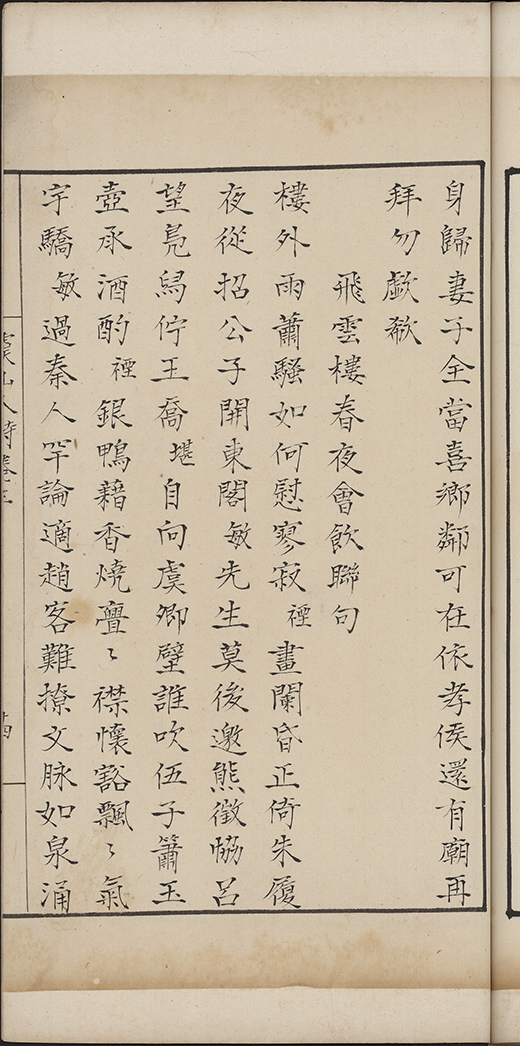 身歸妻子全當喜鄉鄰可在依孝侯還有廟再
拜勿歔欷
飛雲樓春夜會飲聯句
樓外雨蕭騷如何慰寥寂禋畫闌昏正倚朱履
夜從招公子開東閣敏先生莫後邀熊徵恊呂
望鳧舄佇王喬堪自向虞卿璧誰吹伍子簫玉
壺承酒酌禋銀鴨藉香燒亹〻襟懷豁飄〻氣
宇驕敏過秦人罕論適趙客難撩文脉如泉涌
山人詩卷三